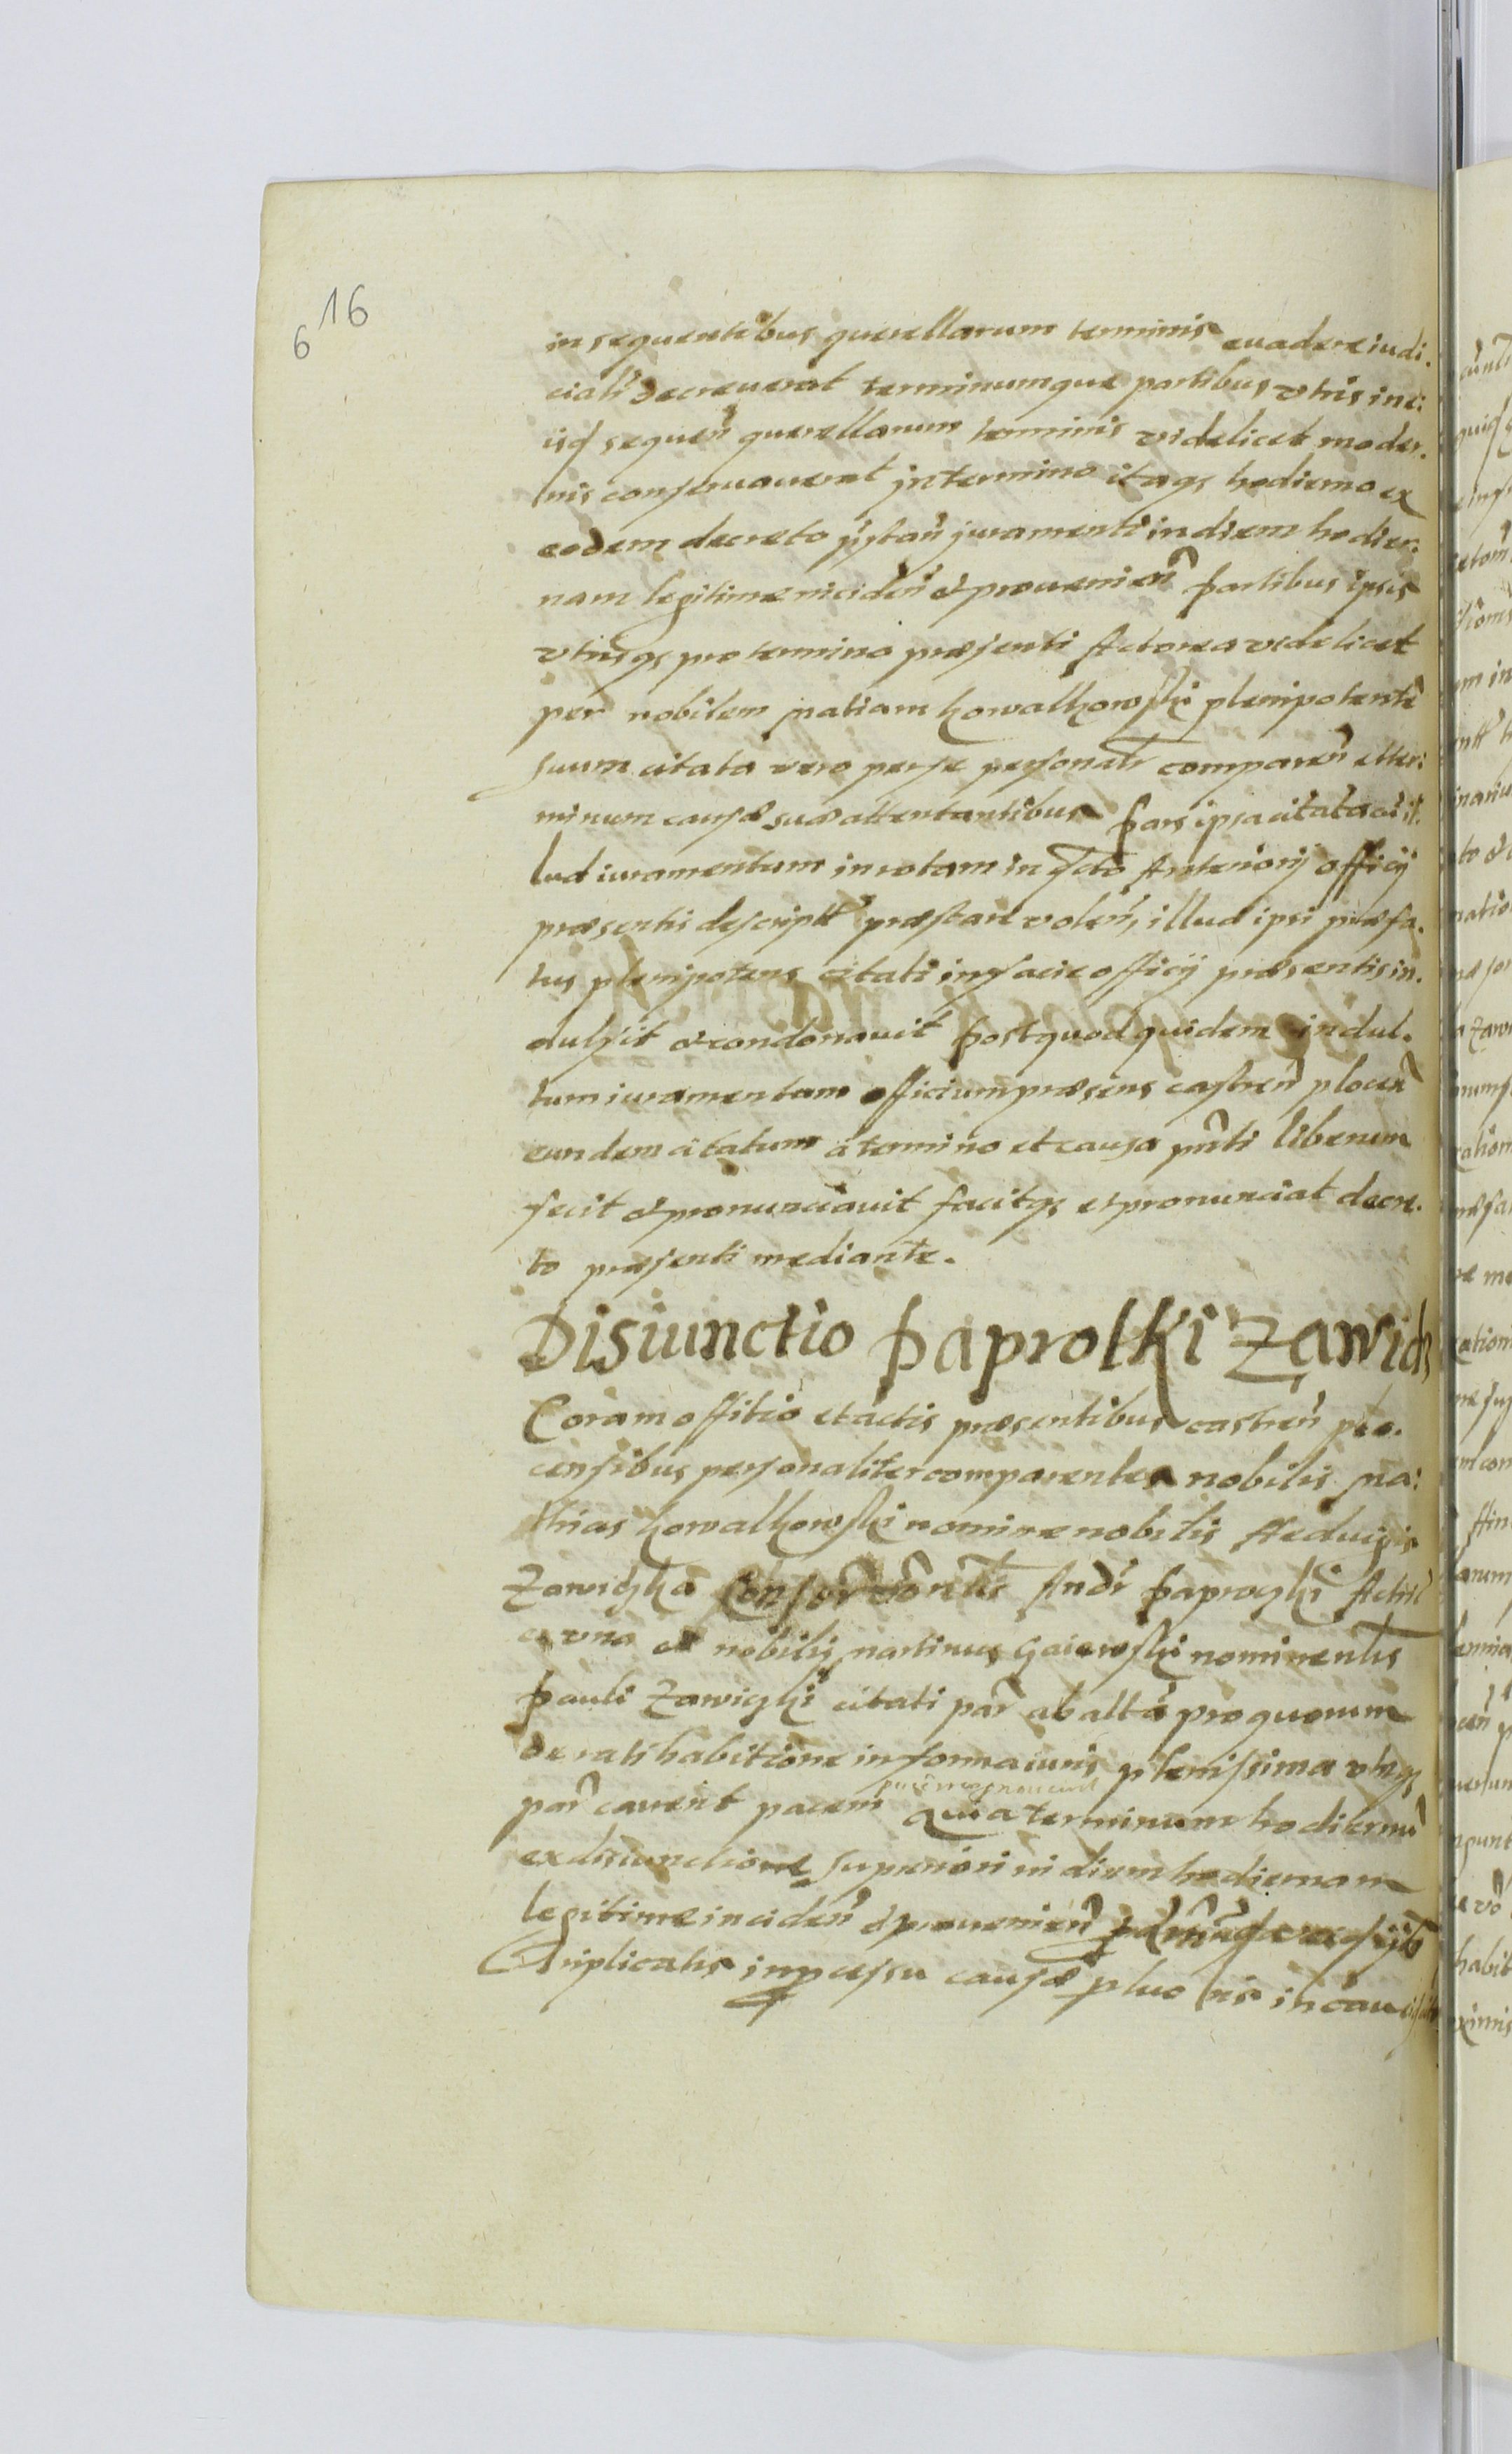 16
6
in sequentibus querellarum terminis euadere iudi.
cialr decreuerat terminumque partibus vtris in e:
isd sequen querellarum terminis videlicet moder.
nis conseruauerat in termino itaqs hodierno ex
eodem decreto iuramenti in diem hodier.
nam legitime inciden et prouenien partibus ipsis
vtrisqs pro termino præsenti Actorea videlicet
per nobilem Matiam Kowalkowski plenipotente
suum citata vero per se personalr comparen et ter:
minum causæ suæ attentantibus Pars ipsa citata
iuramentum in rotam in Anterioris officij
præsentis descriptt præstare volen, illud ipsi præfa.
tus plenipotens citati in facie officij præsentis in.
dulsit & condonauit Post quod quidem indul.
tum iuramentum officium præsens castren plocen
eundem citatum a termino et causa pnti liberum
fecit & pronunciauit facitqs et pronunciat decre.
to præsenti mediante.
Disiunctio Paprolki Zawich
Coram offitio et actis præsentibus castren plo.
censibus personaliter comparentes nobilis Ma:
thias Kowalkowski nomine nobilis Heduigis
Zawiczka Andr Paproczki Actric
et vna et nobilis Martinus Gaiewski nomine
Pauli Zawiczki citati par ab altera pro quorum
de ratihabitione in forma iuris plenissima vtraqs
par cauent pacem quia terminum hodiernu
ex disiunctione superiori in diem hodiernam
legitime inciden & prouenien
Triplicatis in pcessu causæ in